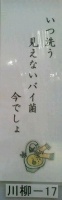 いつ洗う
見えないバイ菌
今でしょ
川柳-17